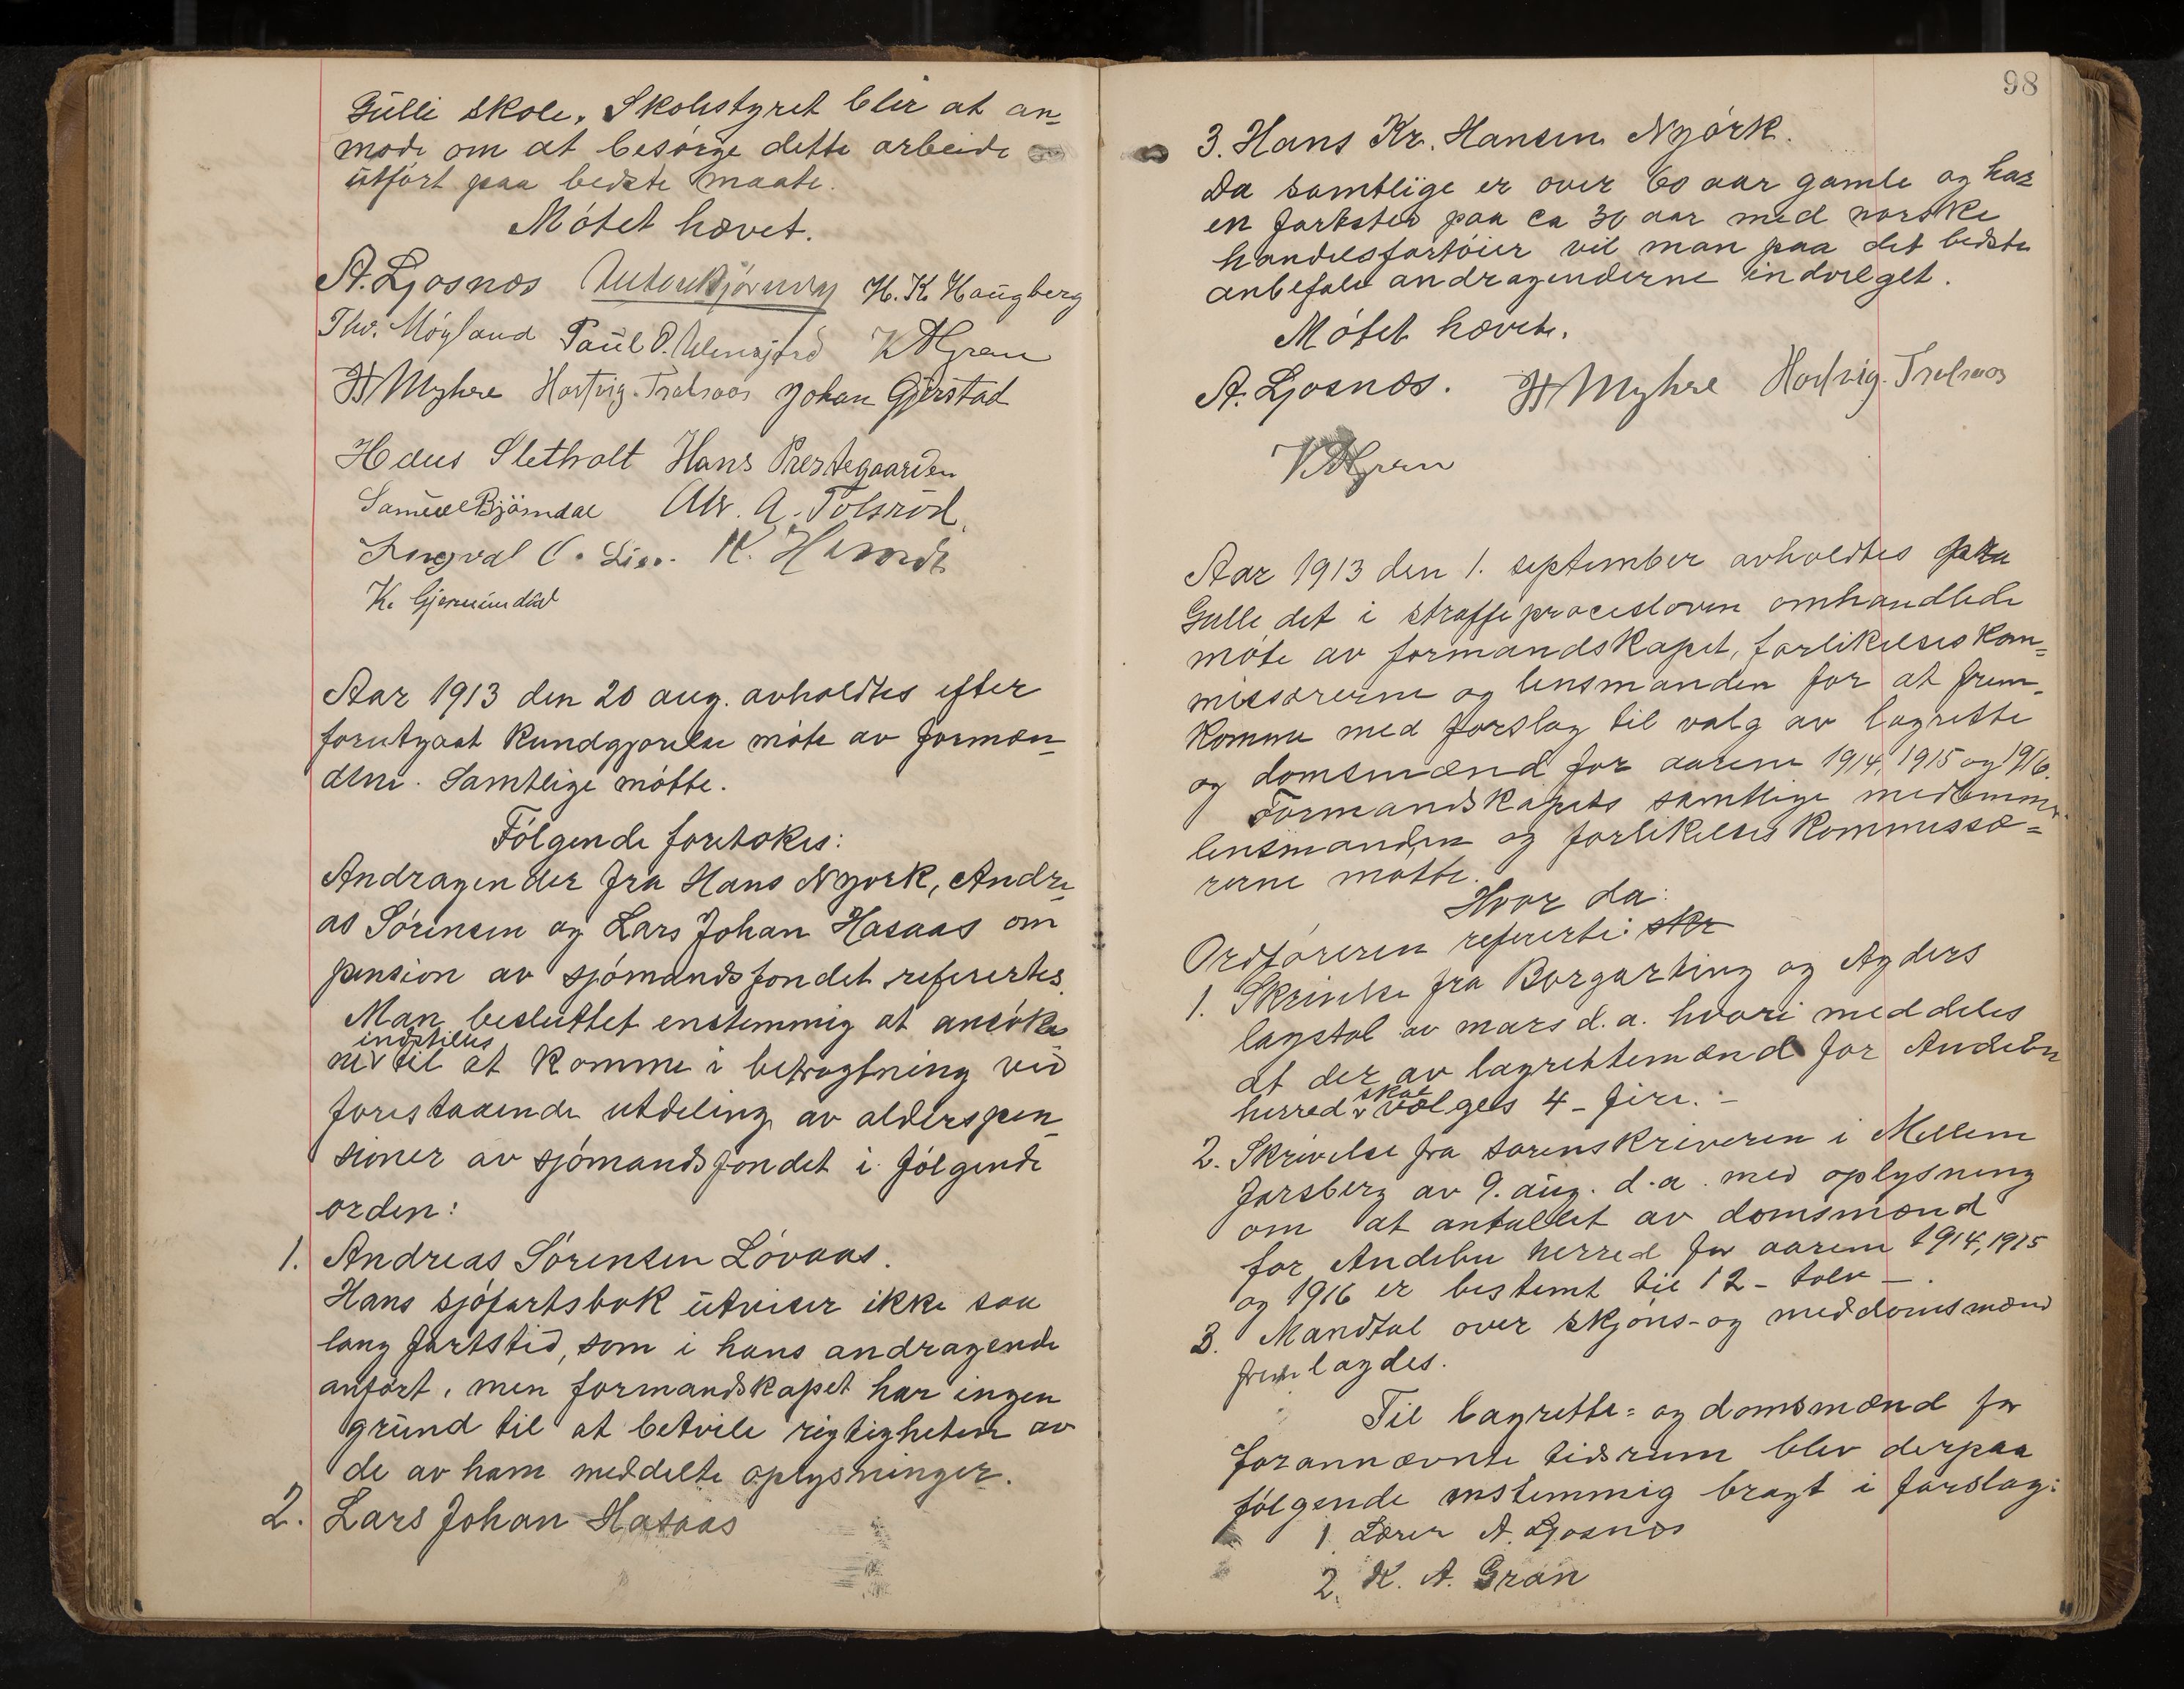 Gulli skole. Skolestyret blir at an-
mode om at besørge dette arbeide
utført paa bedste maate.
Møtet hævet.
A. Ljosnæs H. K. Haugberg
Thv. Møyland Paul O. K A Gran
H Myhre Hartvig Trolsaas Johan Gjerstad
Hans Sletholt Hans Prestegaarden
Samuel Bjørndal Alv. A. Tolsrød
Ingval C. Lie.
K.
Aar 1913 den 20 aug. avholdtes efter
forutgaat kundgjørelse møte av forman-
dene. Samtlige møtte.
Følgende foretokes:
Andragender fra Hans Nyørk, Andre-
as Sørensen og Lars Johan Hasaas om
pension av sjømandsfondet referertes.
Man besluttet enstemmig at ansøker-
indstilles
ne v til at komme i betragtning ved
forestaaende utdeling av alderspen-
sioner av sjømandsfondet i følgende
orden:
1. Andreas Sørensen Løvaas.
Hans sjøfartsbok utviser ikke saa
lang fartstid, som i hans andragende
anført, men formandskapet har ingen
grund til at betvile rigtigheten av
de av ham meddelte oplysninger.
2. Lars Johan Hasaas
98
3. Hans Kr. Hansen Nyørk.
Da samtlige er over 60 aar gamle og har
en fartstid paa ca 30 aar med norske
handelsfartøier vil man paa det bedste
anbefale andragenderne indvilget.
Møtet hævet.
A. Ljosnæs. H Myhre Hartvig Trolsaas
K A Gran
Aar 1913 den 1. september avholdtes paa
Gulli det i straffeprocesloven omhandlede
møte av formandskapet, forlikelseskom-
missærerne og lensmanden for at frem-
komme med forslag til valg av lagrette
og domsmænd for aarene 1914, 1915 og 1916.
Formandskapets samtlige medlemmer
lensmanden og forlikelseskommissæ-
rerne møtte.
Hvor da:
Ordføreren refererte: skr
1. Skrivelse fra Borgarting og Agders
lagstol av mars d.a. hvori meddeles
at der av lagrettemænd for Andebu
skal
herred v vælges 4 - fire. -
2. Skrivelse fra sorenskriveren i Mellem
Jarsberg av 9. aug. d.a. med oplysning
om at antallet av domsmænd
for Andebu herred for aarene 1914, 1915
og 1916 er bestemt til 12 - tolv - .
3. Mandtal over skjøns- og meddomsmænd
fremlagdes.
Til lagrette- og domsmænd for
forannævnte tidsrum blev derpaa
følgende enstemmig bragt i forslag:
1. Lærer A. Ljosnæs
2. K. A. Gran